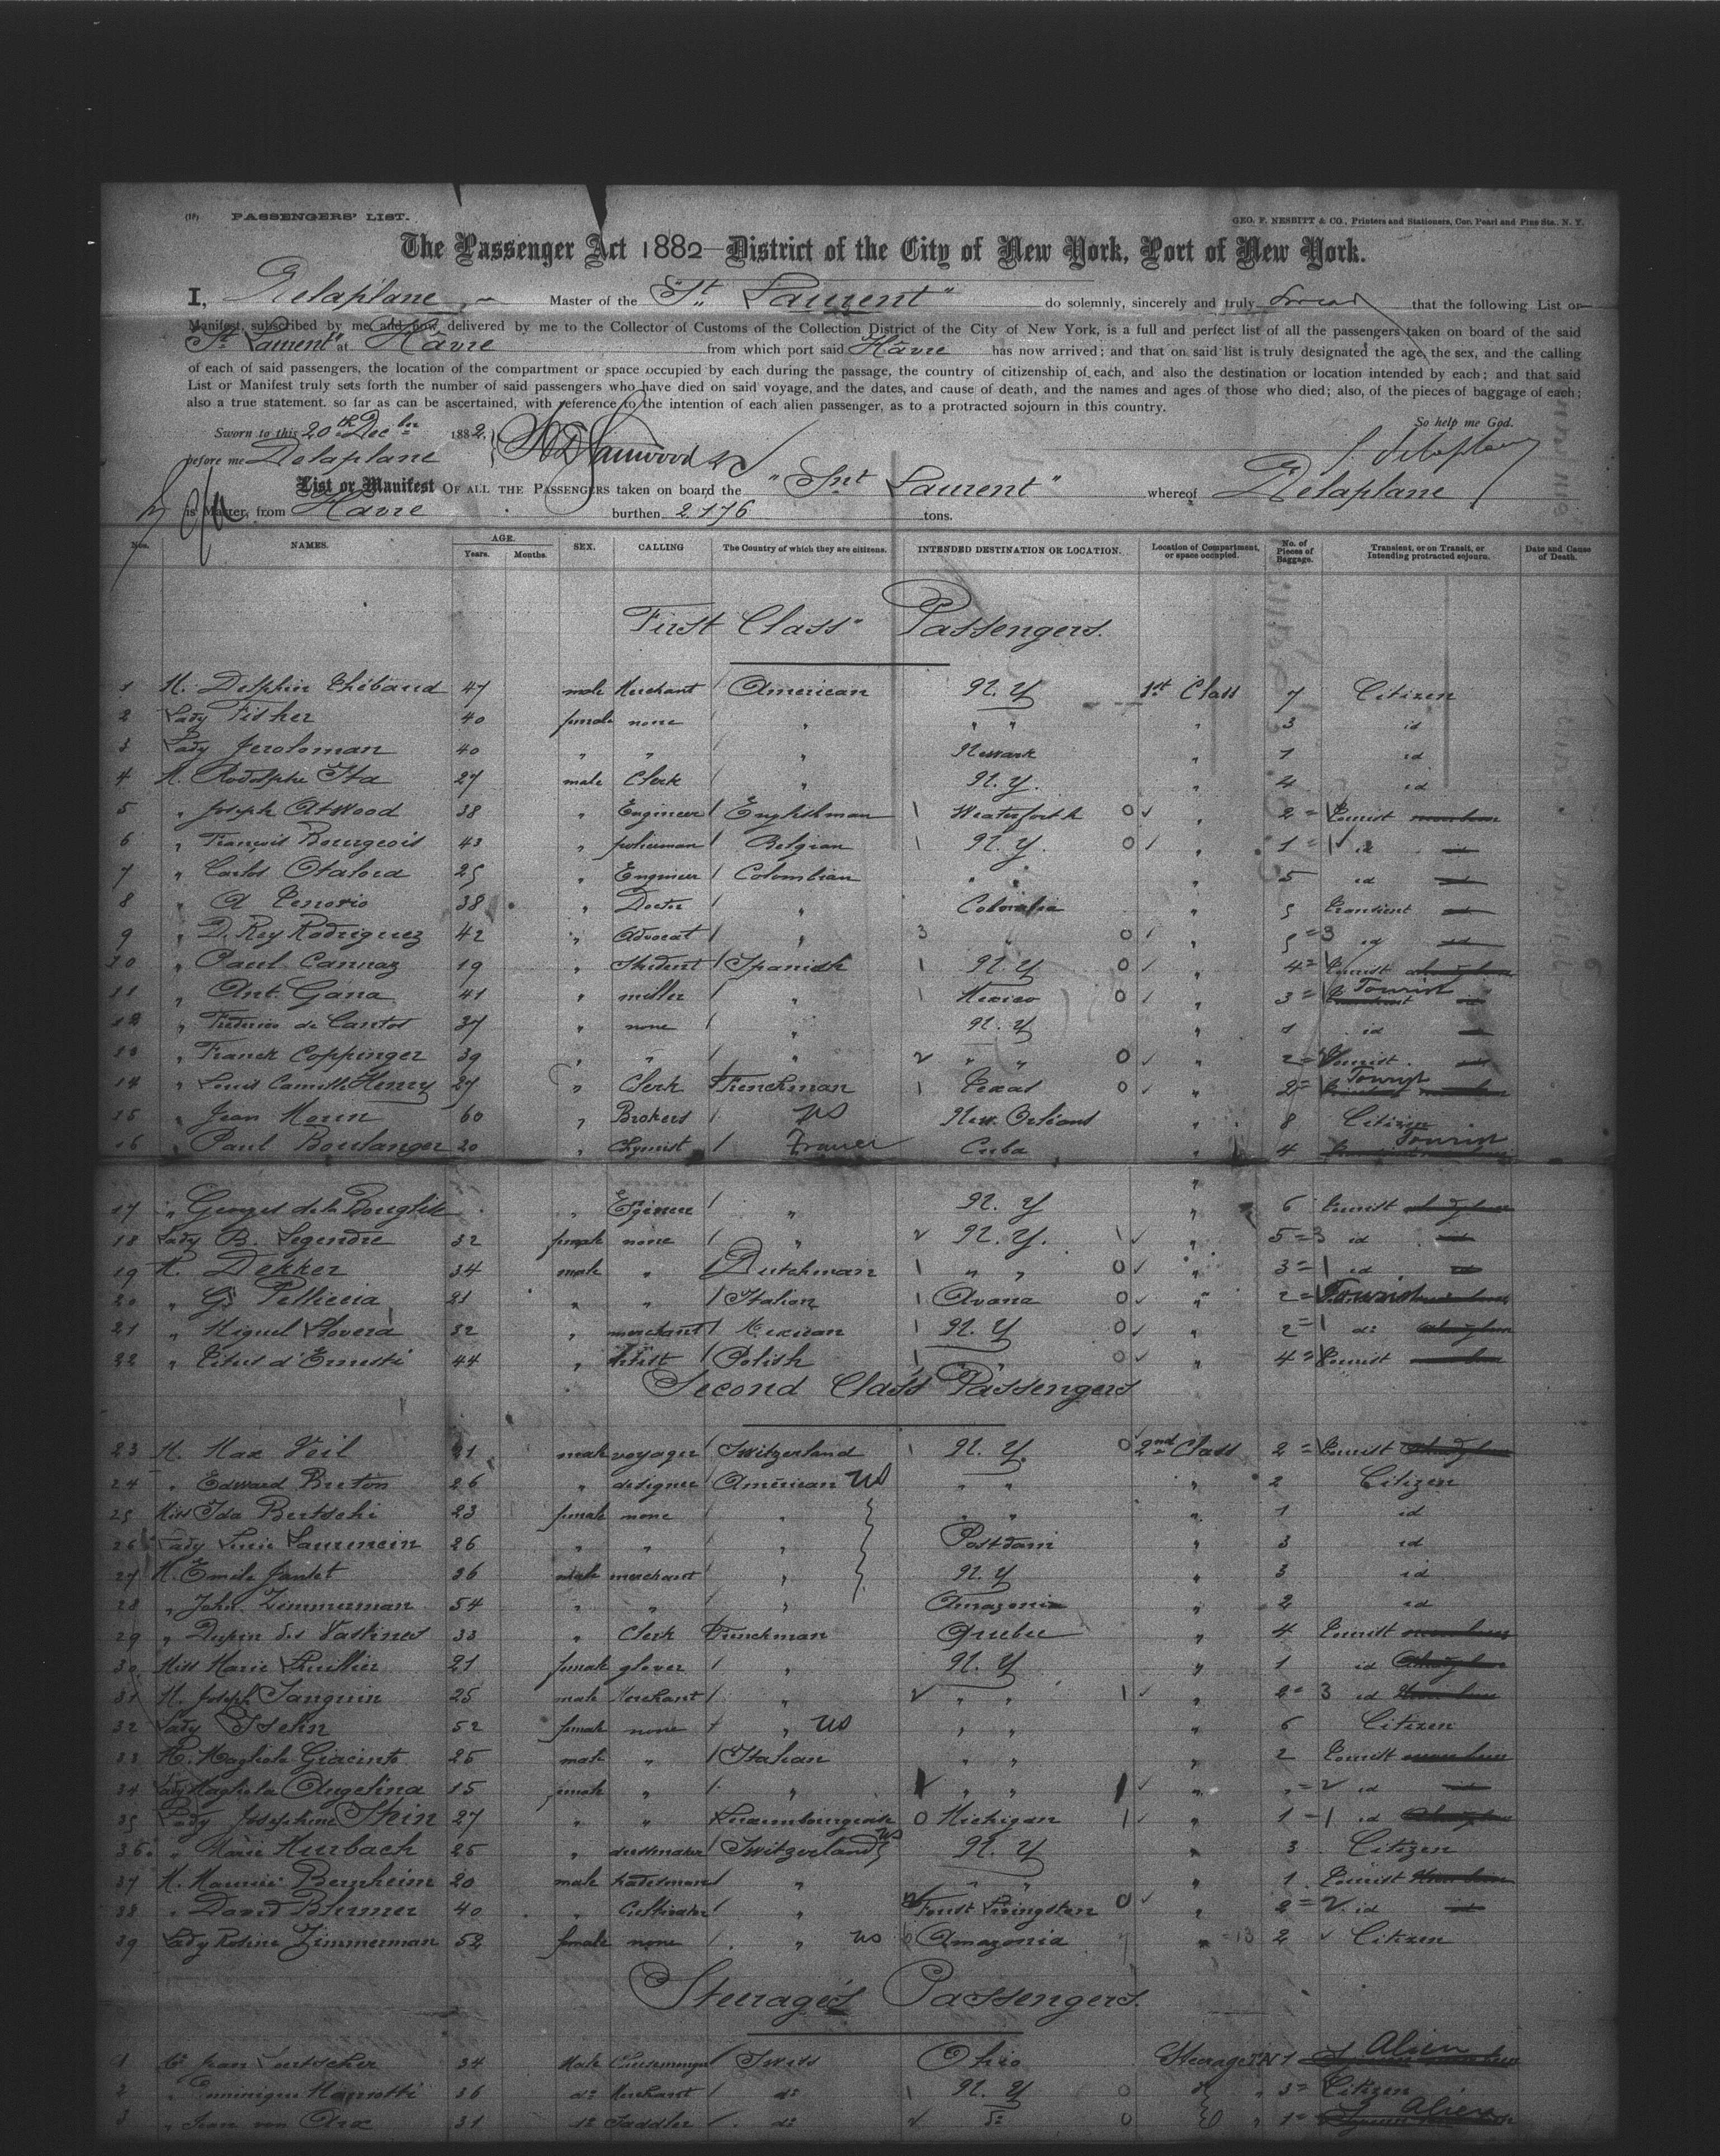 (18) PASSENGERS' LIST. GEO. F. NESBITT & CO., Printers and Stationers, Cor. Pearl and Pine Sts., N. Y.
The Passenger Act 1882—District of the City of New York, Port of New York.
I, Delaplane, Master of the "St. Laurent" do solemnly, sincerely and truly swear that the following List or
Manifest, subscribed by me and now delivered by me to the Collector of Customs of the Collection District of the City of New York, is a full and perfect list of all the passengers taken on board of the said
St. Laurent" at Hâvre from which port said Hâvre has now arrived; and that on said list is truly designated the age, the sex, and the calling
of each of said passengers, the location of the compartment or space occupied by each during the passage, the country of citizenship of each, and also the destination or location intended by each; and that said
List or Manifest truly sets forth the number of said passengers who have died on said voyage, and the dates, and cause of death, and the names and ages of those who died; also, of the pieces of baggage of each;
also a true statement. so far as can be ascertained, with reference to the intention of each alien passenger, as to a protracted sojourn in this country.
So help me God.
Sworn to this 20th Decber 1882,
before me Delaplane
List or Manifest OF ALL THE PASSENGERS taken on board the "Snt Laurent" whereof Delaplane
is Master, from Havre burthen 2176 tons.
Nos. NAMES. AGE. Years. Months. SEX. CALLING The Country of which they are citizens. INTENDED DESTINATION OR LOCATION. Location of Compartment, or space occupied. No. of Pieces of Baggage. Transient, or on Transit, or Intending protracted sojourn. Date and Cause of Death.
First Class Passengers.
1 M. Delphin Thébaud 47 male Merchant American N. Y 1st Class 7 Citizen
2 Lady Fisher 40 female none " " " " 3 id
3 Lady Jeroloman 40 " " " Newark " 1 id
4 M. Rodolphe Ita 27 male Clerk " N. Y. " 4 id
5 " Joseph Atwood 38 " Engineer Englishman 1 O " 2 = 1 Tourist
6 " François Bourgeois 43 " policeman Belgian 1 N. Y. O " 1 = 1 id
7 " Carlos Otalora 25 " Engineer Colombian " " " 5 id
8 " A Tenorio 38 " Doctor " Colombia " 5 transient
9 " D. Rey Rodriguez 42 " Advocat " 3 " O " 5 = 3 id
10 " Paul Cannaz 19 " Student Spanish 1 N. Y O " 4 = 1 Tourist
11 " Ant. Gana 41 " miller " 1 Mexico O " 3 = 1 Tourist
12 " de Cantos 37 " none " N. Y " 1 id
13 " Franck Coppinger 39 " " " 2 " " O " 2 = Tourist
14 " Louis Camille Henry 27 " Clerk Frenchman 1 Texas O " 2 = Tourist
15 " Jean Morin 60 " Brokers US New Orléans " 8 Citizen
16 " Paul Boulanger 20 " Chymist France Cuba " 4 Tourist
17 " Georges de la Bouglise " Egineer " N. Y " 6 Tourist
18 Lady B. Legendre 32 female none " 2 N. Y. 1 " 5 = 3 id
19 M. Dekker 34 male " Dutchman 1 " " O " 3 = 1 id
20 " G. Pelliccia 21 " " Italian 1 Avana O " 2 = 1 Tourist
21 " Miguel Llovera 32 " merchant Mexican 1 N. Y O " 2 = 1 do
22 " Titus d'Ernesti 44 " Artist Polish 1 O " 4 = Tourist
Second Class Passengers
23 M. Max Veil 21 male voyager Switzerland 1 N. Y. O 2nd Class 2 = Tourist
24 " Edward Breton 26 " designer American US " " " 2 Citizen
25 Miss Ida Bertschi 23 female none " " " " 1 id
26 Lady Lucie Laurencin 26 " " " Postdam " 3 id
27 M. Emile Jantet 36 male merchant " N. Y " 3 id
28 " John Zimmerman 54 " " " Amazonia " 2 id
29 " Dupin des Vastines 33 " Clerk Frenchman Quebec " 4 Tourist
30 Miss Marie Lhuillier 21 female glover " N. Y " 1 id
31 M. Joseph Sanguin 25 male Merchant " 2 " " 1 " 2 = 3 id
32 Lady Iselin 52 female none " US " " " 6 Citizen
33 M. Magliola Giacinto 25 male " Italian " " 2 Tourist
34 Lady Magliola Angelina 15 female " " " " 1 " " = 2 id
35 Lady Josephine Thin 27 " " Luxembourgeoise O Michigan 1 " 1 = 1 id
36 " Marie Murbach 25 " dressmaker Switzerland US N. Y " 3 Citizen
37 M. Maurice Bernheim 20 male tradesman " " " " 1 Tourist
38 " David Blumer 40 " Cultivator " Livingston O " 2 = 2 id
39 Lady Rosine Zimmerman 52 female none " US Amazonia " = 13 2 Citizen
Steerage's Passengers.
1 Mr Jean Loertscher 34 Male Swiss Ohio Steerage 1 Alien
2 " Dominique 36 do Merchant do 1 N. Y O " 3 = Citizen
3 " Jean von Arx 31 do Saddler do do O " 1 = Alien